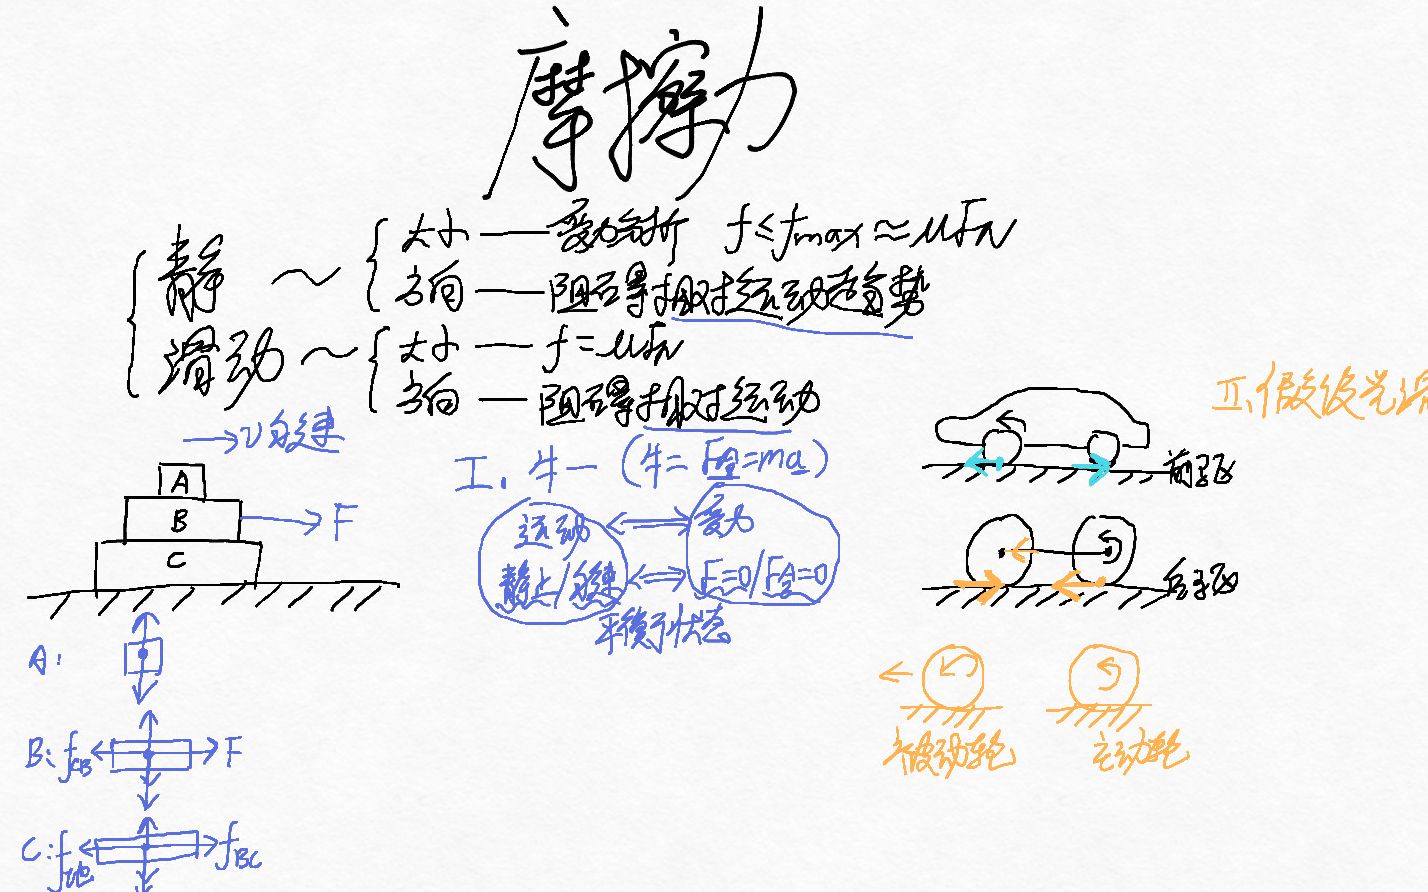 摩擦力
静 ~ 大小 — 受力分析 f ≤ fmax ≈ μFN
方向 — 阻碍相对运动趋势
滑动 ~ 大小 — f = μFN
方向 — 阻碍相对运动
→ v 匀速
A
B → F
C
A:
B: fCB F
C: f地 fBC
I. 牛一 (牛二 F合=ma)
运动 ⟺ 受力
静止/匀速 ⟺ F=0/F合=0
平衡状态
II. 假设光滑
前驱
后驱
被动轮 主动轮